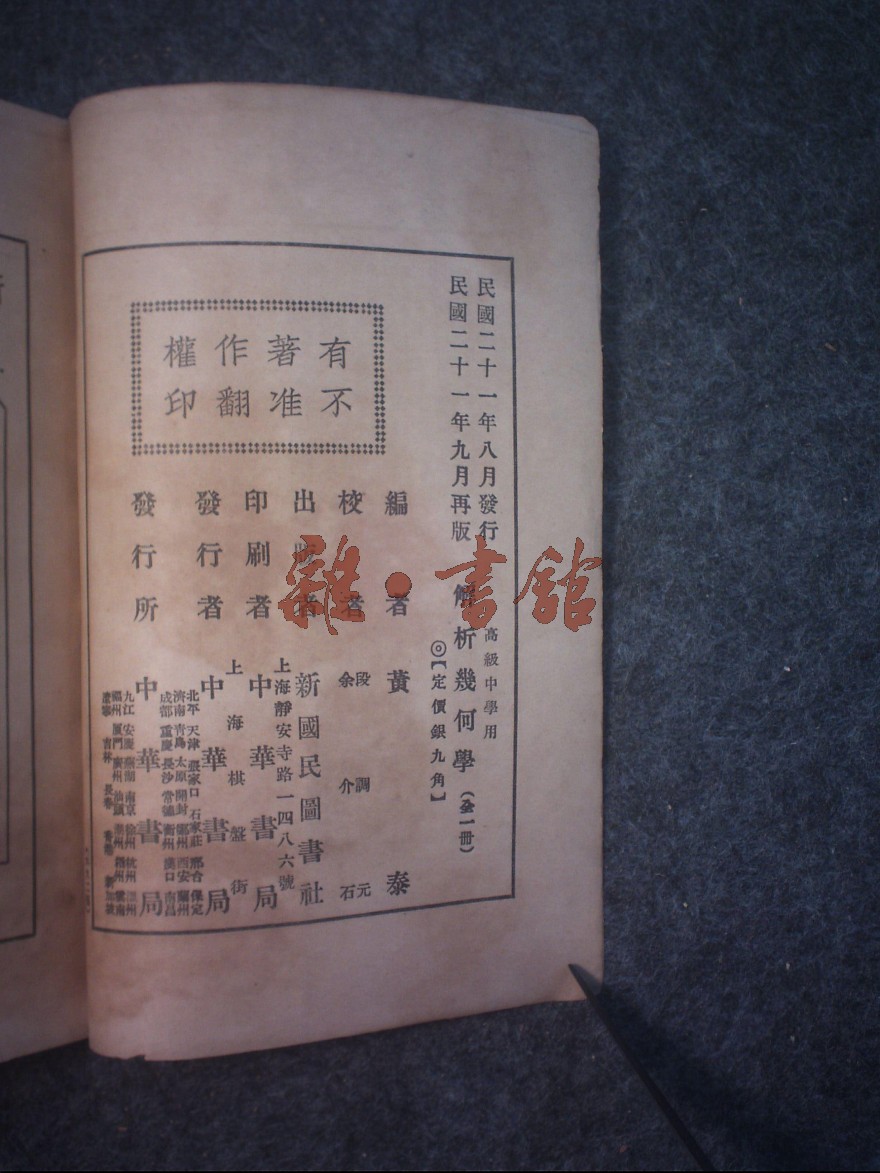 民國二十一年八月發行
民國二十一年九月再版
高級中學用
解析幾何學（全一冊）
◎【定價銀九角】
有不
著准
作翻
權印
編者 黃泰
校者 段調元
余介石
出版者 新國民圖書社
上海靜安寺路一四八六號
印刷者 中華書局
上海棋盤街
發行者 中華書局
北平 天津 張家口 石家莊 邢台 保定
濟南 青島 太原 開封 鄭州 西安 蘭州
成都 重慶 長沙 常德 衡州 漢口 南昌
發行所 中華書局
九江 安慶 蕪湖 南京 徐州 杭州
福州 廈門 廣州 汕頭 雲南
吉林 長春 新加坡
雜·書舘